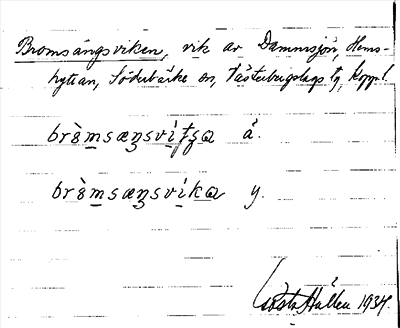 Bromsängsviken, vik av Dammsjön, Hems-
hyttan, Söderbärke sn, Västerbergslags tg, Koppl.
brò̀msæŋsvìʃʒɑ ä.
brò̀msæŋsvìkɑ y.
Gösta Hallén 1934